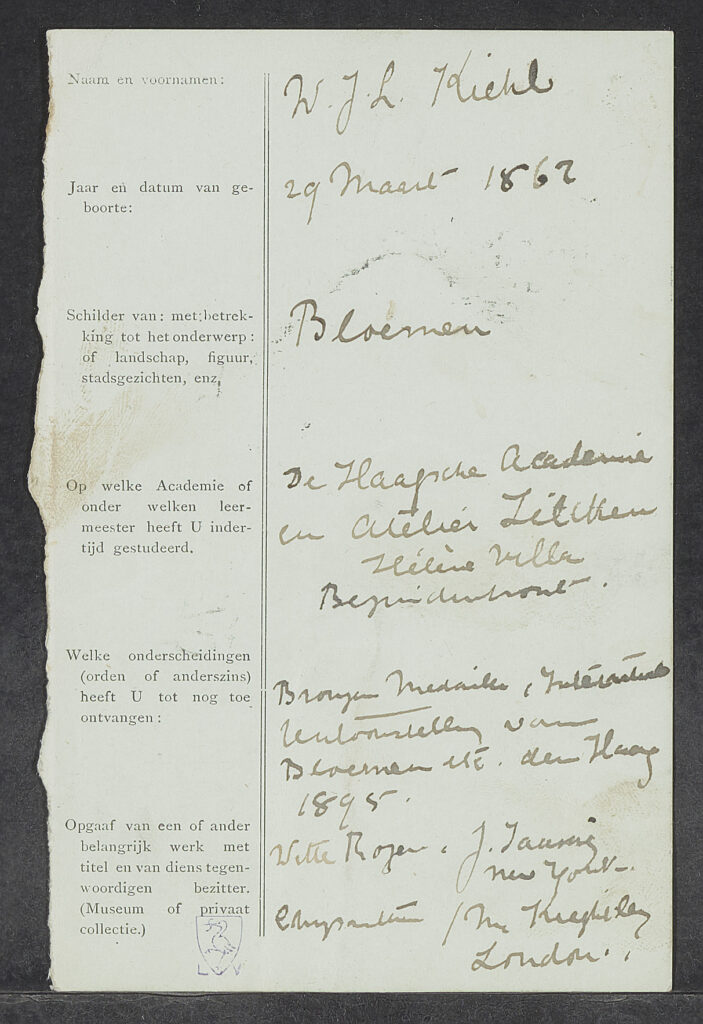 Naam en voornamen:
W. J. L. Kiehl
Jaar en datum van ge-
boorte:
29 Maart 1862
Schilder van: met betrek-
kking tot het onderwerp:
of landschap, figuur,
stadsgezichten, enz.
Bloemen
Op welke Academie of
onder welken leer-
meester heeft U inder-
tijd gestudeerd.
De Haagsche Academie
en Atelier Zilcken
Hélène Villa
Bezuidenhout.
Welke onderscheidingen
(orden of anderszins)
heeft U tot nog toe
ontvangen:
Bronzen Medaille,
tentoonstelling van
Bloemen etc. den Haag
1895.
Opgaaf van een of ander
belangrijk werk met
titel en van diens tegen-
woordigen bezitter.
(Museum of privaat
collectie.)
Witte Rozen, J.
New York.
London.